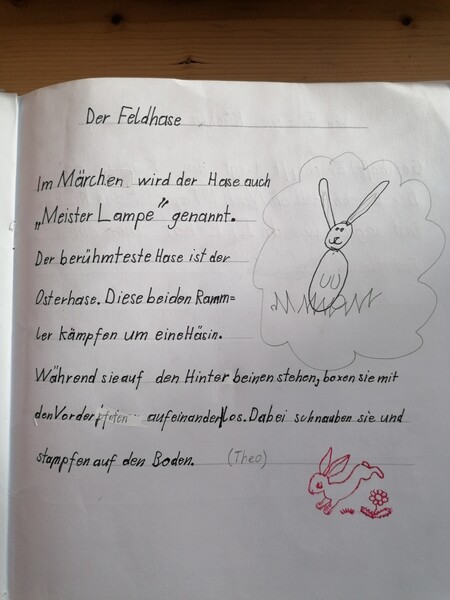 Der Feldhase
Im Märchen wird der Hase auch
„Meister Lampe" genannt.
Der berühmteste Hase ist der
Osterhase. Diese beiden Ramm=
ler kämpfen um eine Häsin.
Während sie auf den Hinterbeinen stehen, boxen sie mit
den Vorderpfoten aufeinander los. Dabei schnauben sie und
stampfen auf den Boden. (Theo)